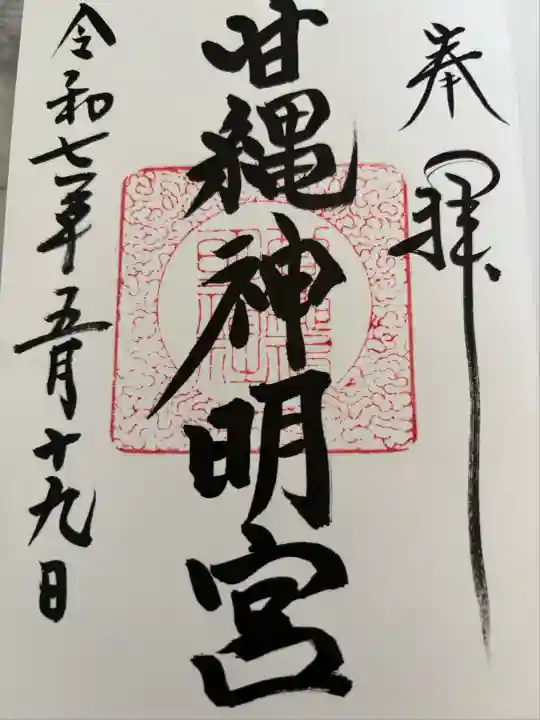 奉拝
甘縄神明宮
令和七年五月十九日